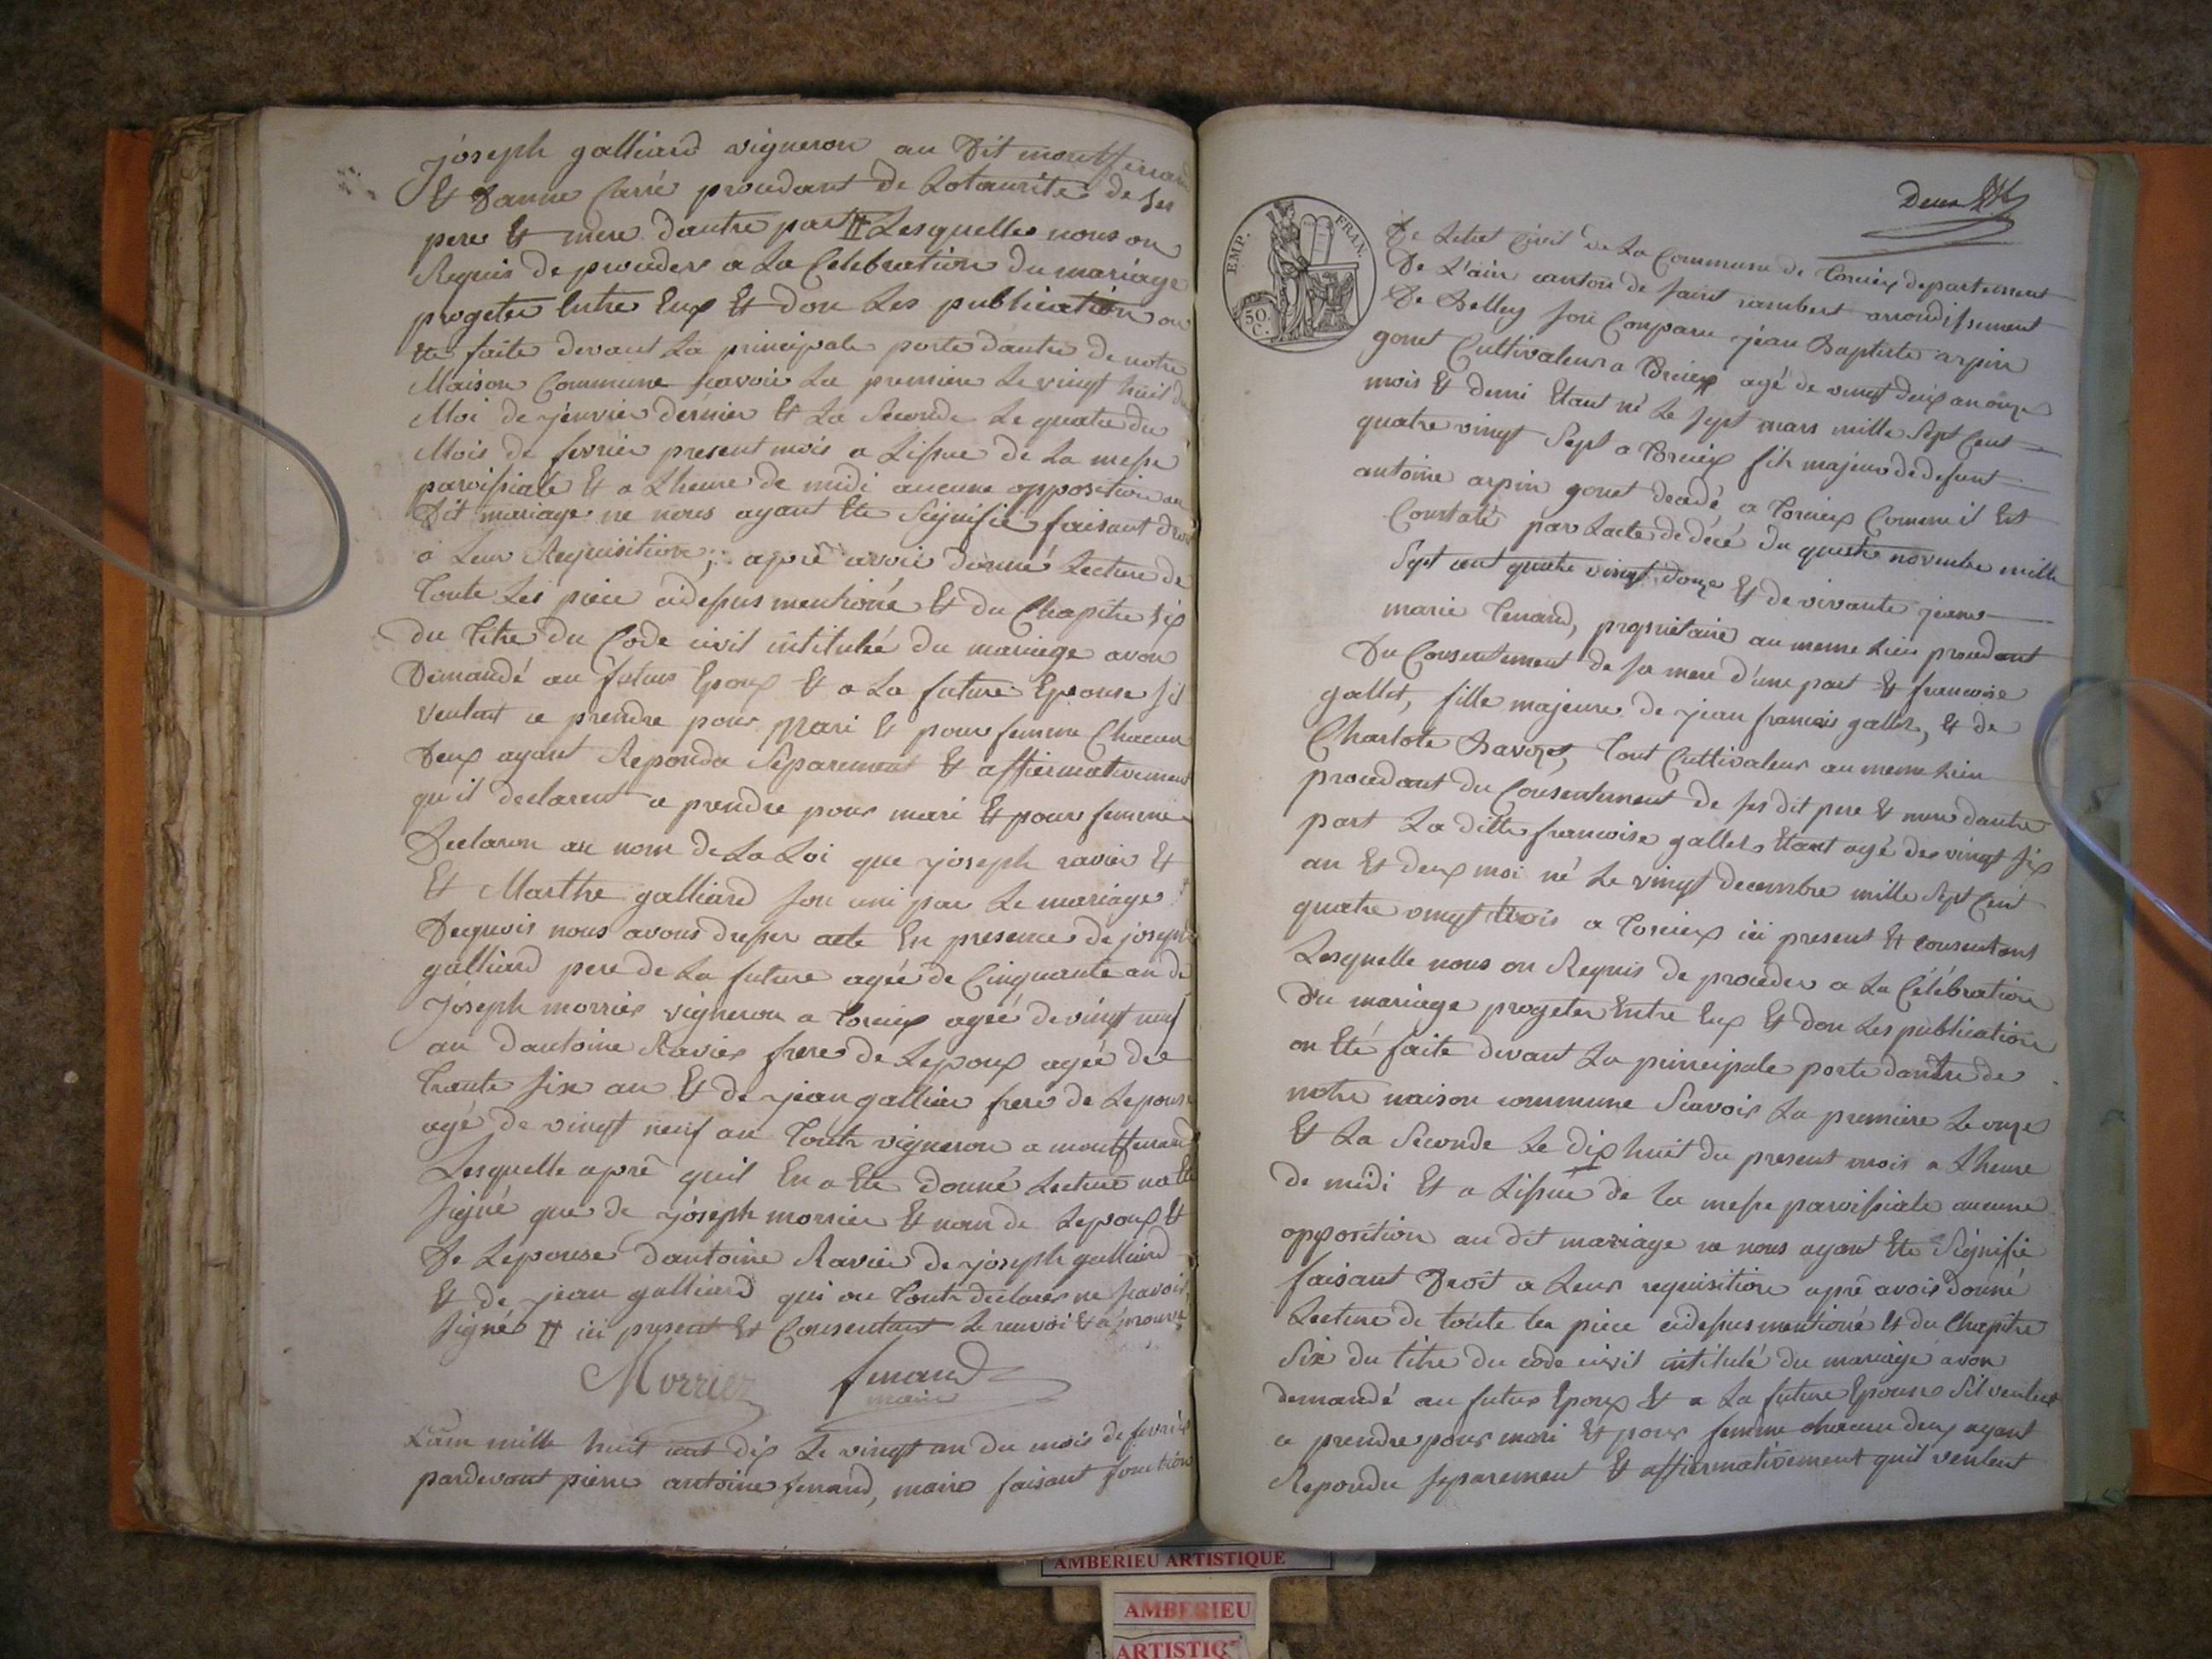 joseph galliard vigneron au Dit montferrand
Et Danne Carré procedant de Lotaurité de Ses
pere Et mere dautre part # Lesquelles nous on
Requis de proceder a La Celebration du mariage
progeter Entre Eux Et don Les publication on
Eté faite devant La principale porte dantré de notre
Maison Commune scavoir La premiere Le vingt huit du
Moi de jenvier dernier Et La Seconde Le quatre du
Mois de fevrier present mois a Lissue de La messe
paroissiale Et a Lheure de midi aucune opposition au
Dit mariage ne nous ayant Eté Signifie faisant droit
a Leur Requisition; apré avoir donné Lecture de
Toute Les piece cidessus mentioné Et du Chapitre Six
du Titre du Code civil intitulée du mariage avon
Demandé au futur Epoux Et a La future Epouse Sil
veulent ce prendre pour Mari Et pour femme Chacun
Deux ayant Repondu Séparement Et affiermativement
quil declarent ce prendre pour mari Et pour femme
Declaron au nom de La Loi que joseph ravier Et
Et Marthe galliard Son uni par Le mariage
Dequois nous avons dresser acte En presence de joseph
galliard pere de La future agée de Cinquante an de
Joseph morrier vigneron a Torcieux agée de vingt neuf
an dantoine Ravier frere de Lepoux agée de
Trante Six an Et de jean galliar frere de Lepouse
agé de vingt neuf an Toute vigneron a montferrand
Lesquelle apré quil En a Eté donné Lecture na Eté
Signé que de joseph morrier Et non de Lepoux Et
De Lepouse dantoine Ravier de joseph galliard
Et de jean galliard qui on Toute declarer ne scavoir
Signér # ici present Et Consentant Le renvoi Et aprouvé
Morrier fenand
maire
Lan mille huit cent dix Le vingt un du mois de fevrier
pardevant pierre antoine fenand, maire faisant fonction
EMP. FRAN.
50
C.
De Letat Civil de La Commune de Torcieux departement
De L'ain canton de Saint rambert arrondissement
De Belley Son Comparu jean Baptiste arpin
gonet Cultivateur a Torcieux agé de vingt deux an onze
mois Et demi Etant né Le Sept mars mille Sept Cent
quatre vingt Sept a Torcieux fils majeur de defunt
antoine arpin gonet decedé a Torcieux Comme il Est
Constaté par Lacte de décé du quatre novembre mille
Sept cent quatre vingt douze Et de vivante jeane
marie Tenand, propriétaire au meme Lieu procedant
Du Consentement de Sa mere d'une part Et francoise
gallet, fille majeure de jean francois gallet, Et de
Charlote Bavozet, Tout Cultivateur au meme Lieu
procedant du Consentement de Ses dit pere Et mere dautre
part La ditte francoise gallet Etant agé de vingt Six
an Et deux moi né Le vingt decembre mille Sept Cent
quatre vingt trois a Torcieux ici present Et consentant
Lesquelle nous on Requis de proceder a La Célébration
du mariage progeter Entre Eux Et don Les publication
on Eté faite devant La principale porte dantre de
notre maison commune Scavoir La premiere Le onze
Et La Seconde Le dix huit du present mois a Lheure
de midi Et a Lissue de La messe paroissiale aucune
opposition au dit mariage ne nous ayant Eté Signifié
faisant Droit a Leur requisition apré avoir donné
Lecture de toute les piece cidessus mentioné Et du Chapitre
Six du titre du code civil intitulé du mariage avon
demandé au futur Epoux Et a La future Epouse Sil veulent
ce prendre pour mari Et pour femme chacun deux ayant
Repondu Separement Et affiermativement quil veulent
AMBERIEU ARTISTIQUE
AMBERIEU
ARTISTIQ